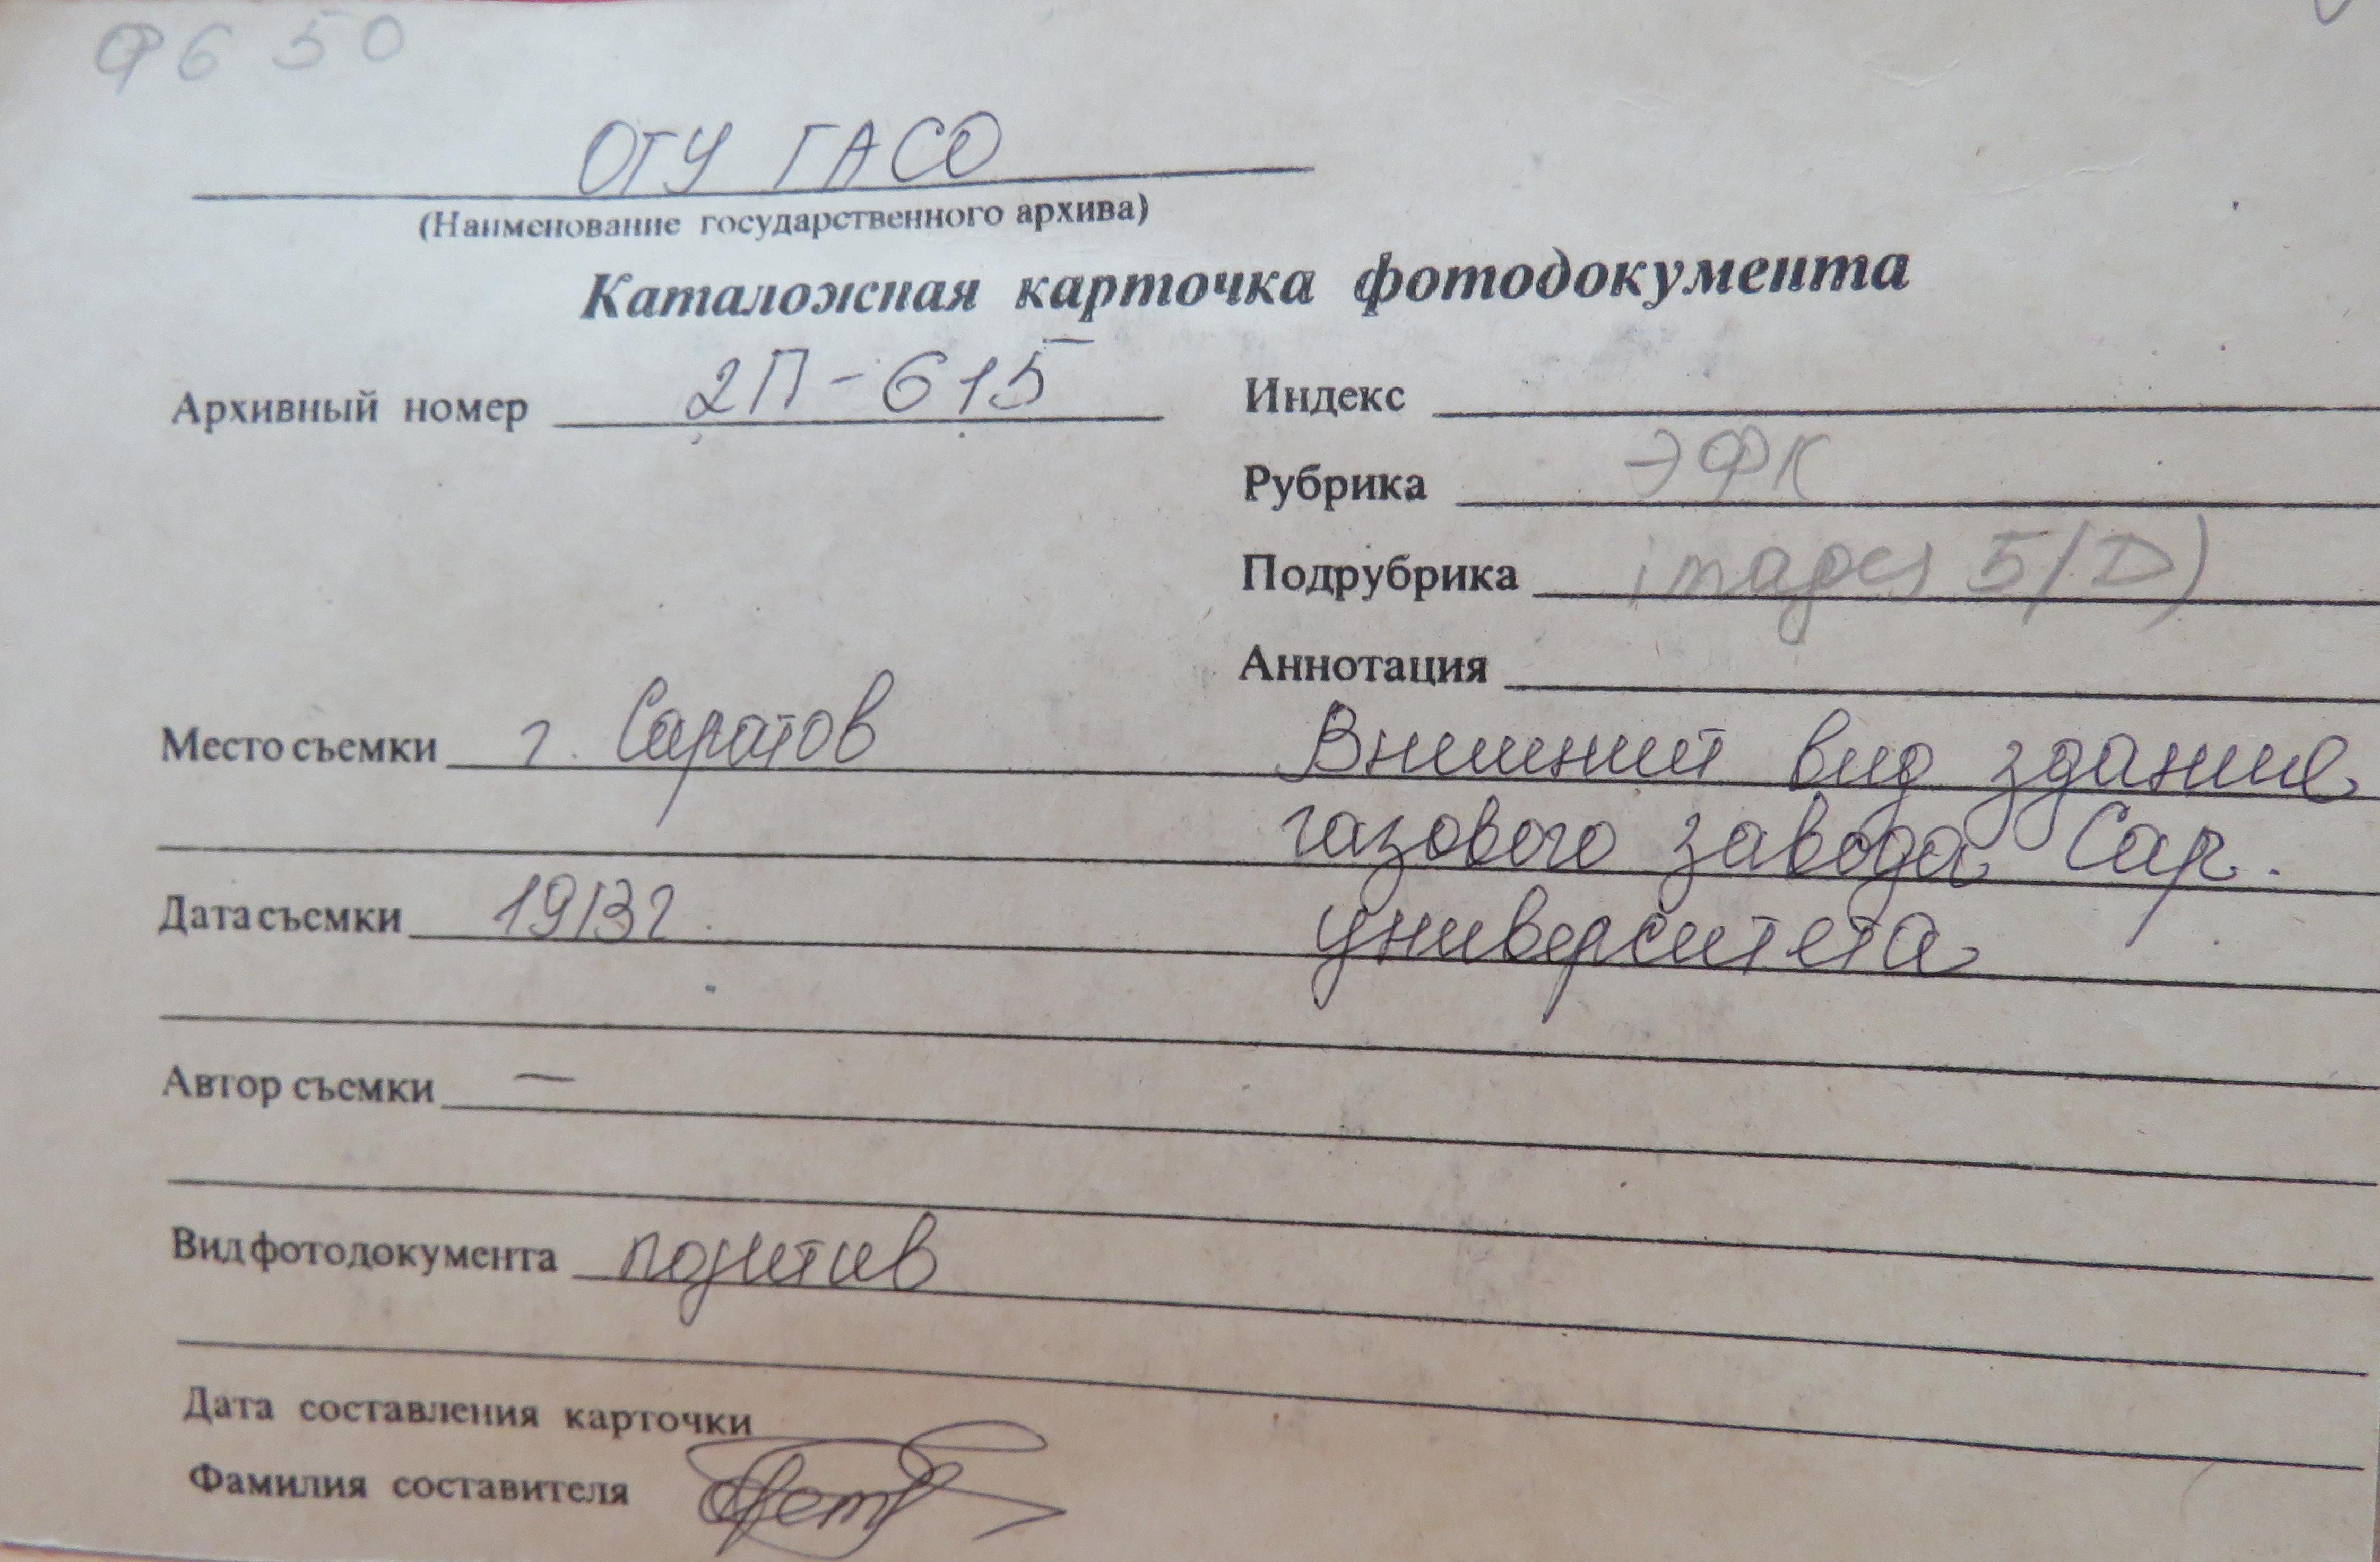 Ф 6 50
ОГУ ГАСО
(Наименование государственного архива)
Каталожная карточка фотодокумента
Архивный номер 2П-615
Индекс
Рубрика ЭФК
Подрубрика images 5(D)
Аннотация
Место съемки г. Саратов
Внешний вид здание
газового завода Сар.
университета
Дата съемки 1913г.
Автор съемки —
Вид фотодокумента позитив
Дата составления карточки
Фамилия составителя